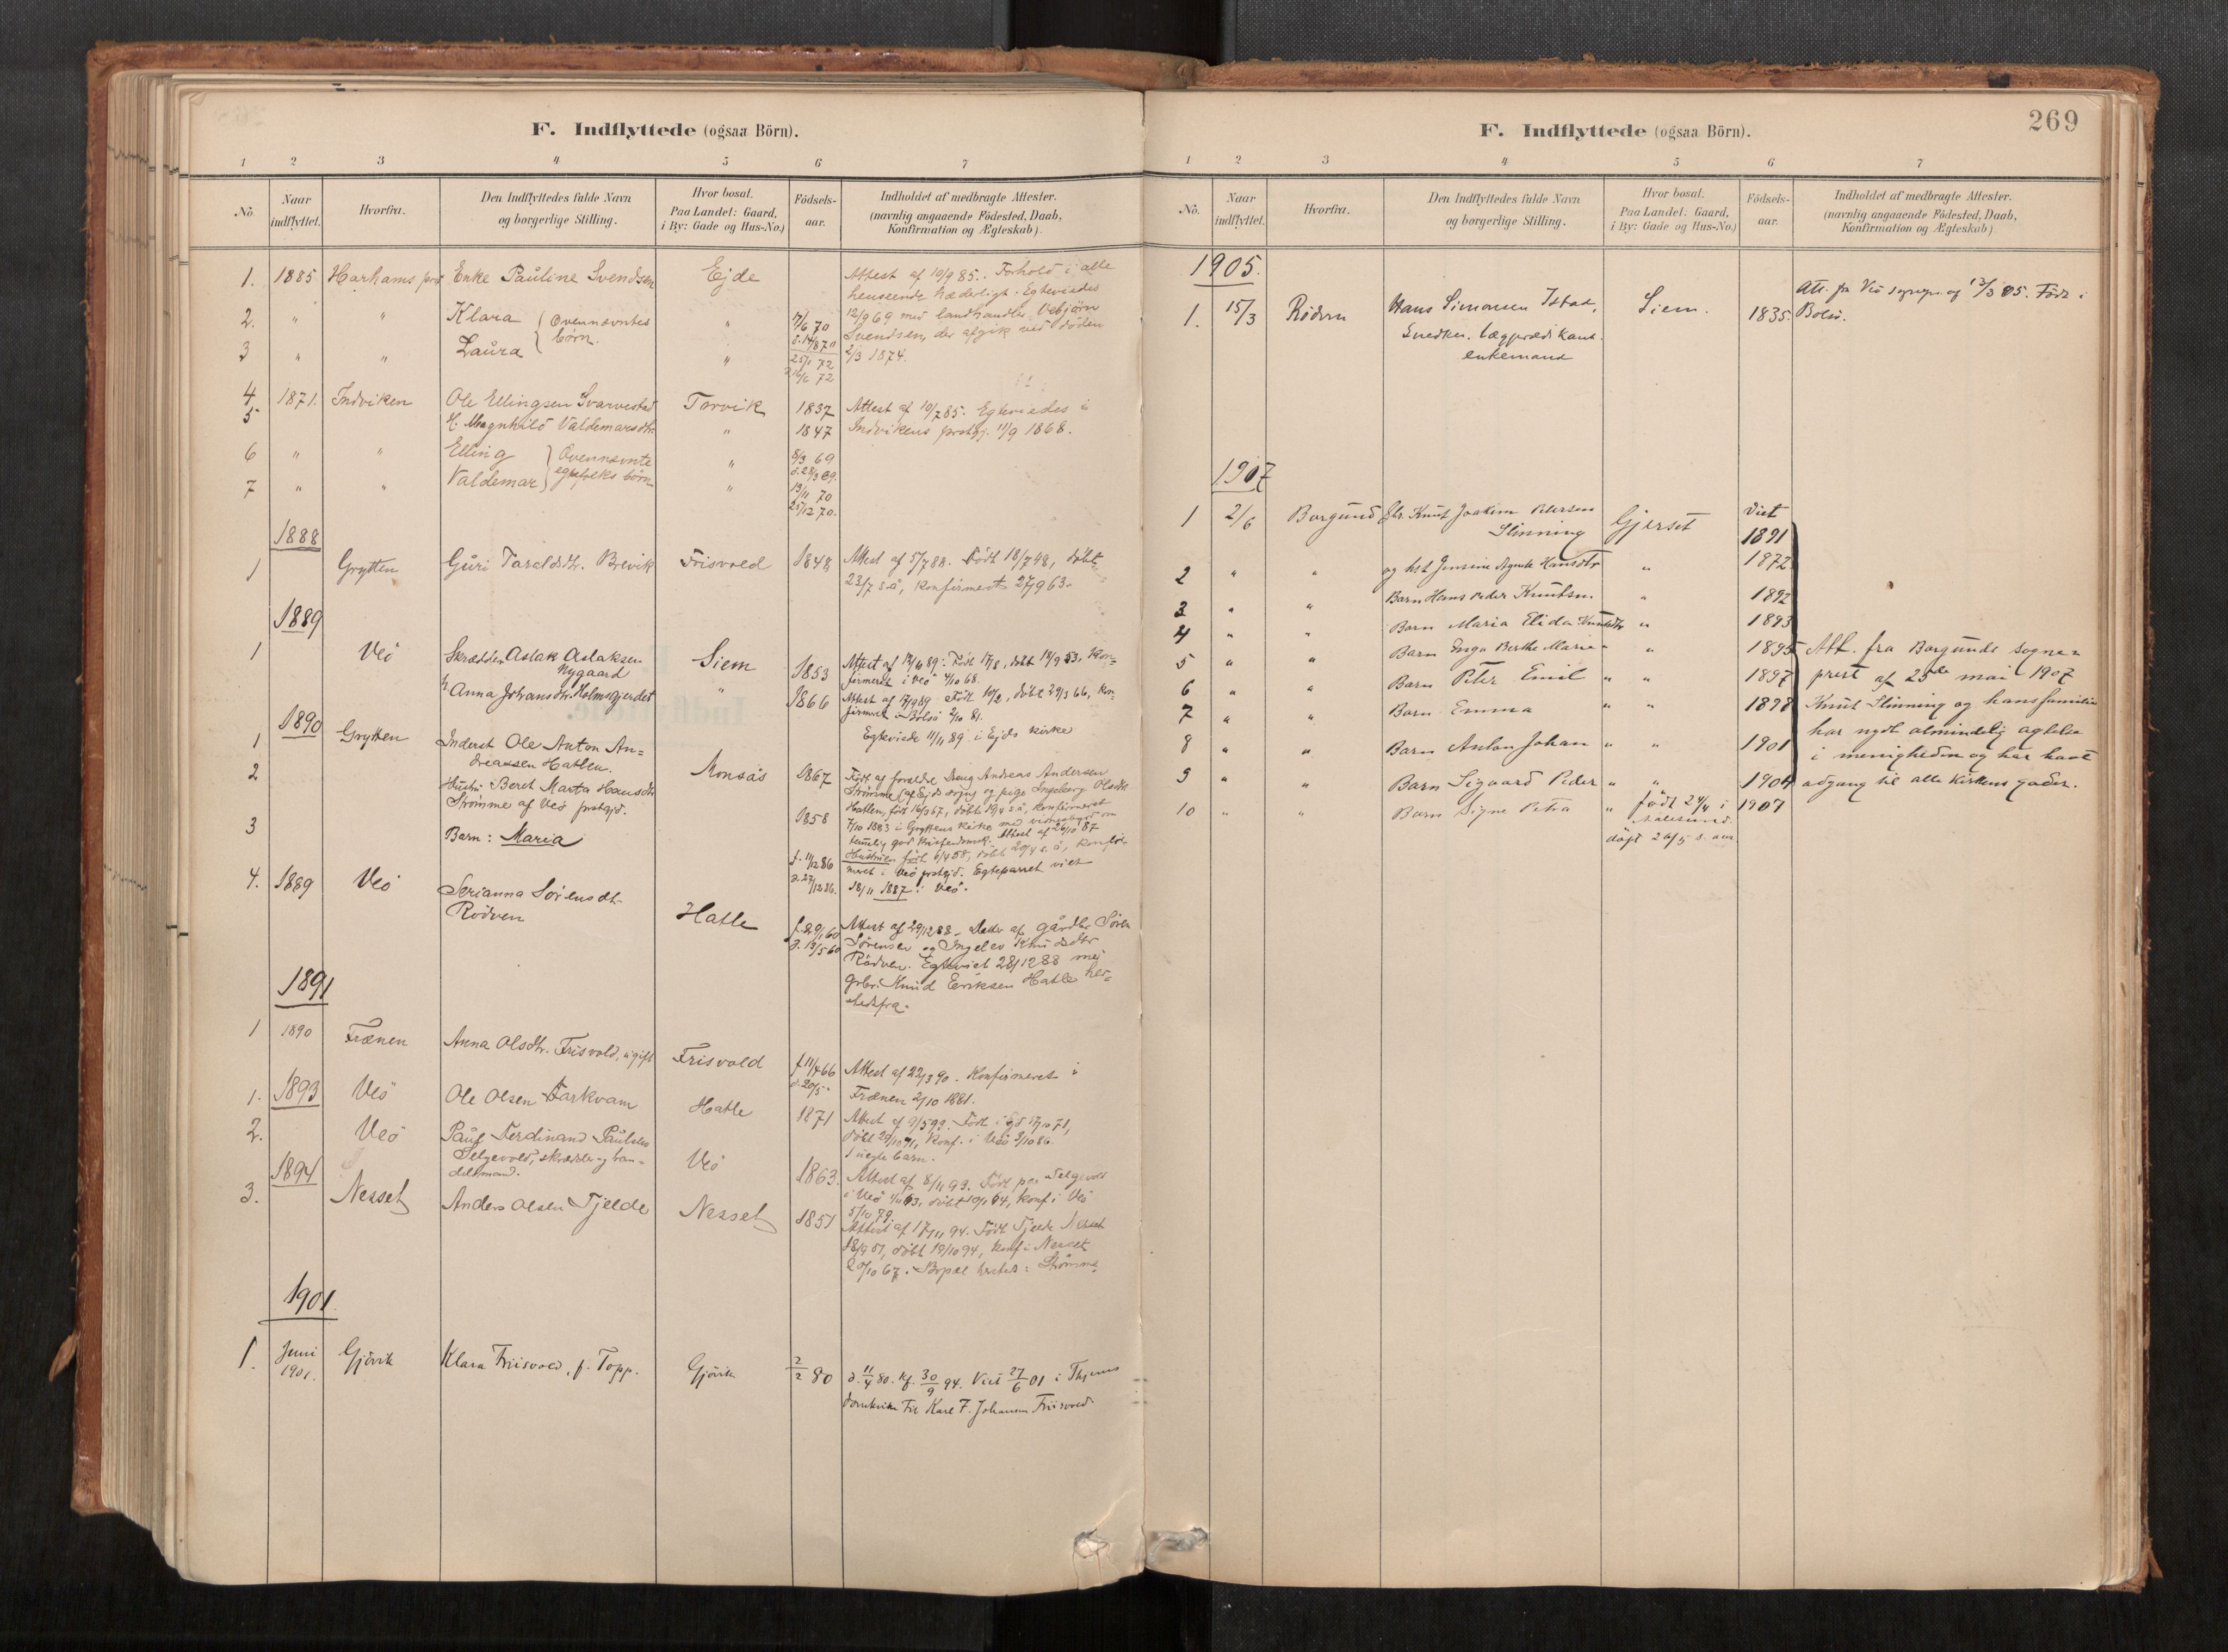 F. Indflyttede (ogsaa Börn).
1 2 3 4 5 6 7
No. Naar indflyttet. Hvorfra. Den Indflyttedes fulde Navn og borgerlige Stilling. Hvor bosat. Paa Landet: Gaard, i By: Gade og Hus-No.) Födsels-aar. Indholdet af medbragte Attester. (navnlig angaaende Födested, Daab, Konfirmation og Ægteskab).
1. 1885 Harhams Enke Pauline Svendsen Ejde Attest af 10/9 85. Forhold i alle
henseende hæderligt. Egteviedes
2. " " Klara } Ovennævntes børn. " 7/6 70 12/9 69 med landhandler Vebjörn
d. 14/8 70 Svendsen, der afgik ved døden
3 " " Laura " 25/1 72 2/3 1874.
4 1871. Indviken Ole Ellingsen Svarvestad Torvik 1837 Attest af 10/7 85. Egteviedes i
5 H. Magnhild Valdemarsdtr " 1847 Indvikens prstgj. 11/9 1868.
6 " " Elling } Ovennævnte " 8/3 69
d. 28/3 69.
7 " " Valdemar } egtefolks børn " 13/11 70
25/12 70.
1888
1 Grytten Guri Taraldsdtr. Brevik Frisvold 1848 Attest af 5/7 88. Født 18/7 48, døbt
23/7 s.å, konfirmert 27/9 63.
1889
1 Veö Skrædder Aslak Aslaksen Nygaard Siem 1853 Født 17/8, døbt 18/9 53, kon=
firmeret i Veö 4/10 68.
h. Anna Johansdtr. Holmsgjerdet " 1866 Attest af 17/9 89 Født 10/2, døbt 29/3 66, kon=
firmeret i Bolsö 2/10 81.
Egteviede 11/11 89 i Ejds kirke
1890
1 Grytten Inderst Ole Anton An=
dreassen Hatlen. Monsås 1867 Født af foreldre Dreng Andreas Andersen
2 Hustru Beret Marta Hansdtr Strømme af Ejds sogn og pige Ingeborg Olsdtr
Strømme af Veö prstgjd. 1858 Hatlen, født 16/3 67, døbt 19/4 s.å, konfirmeret
7/10 1883 i Gryttens kirke med vidnesbyrd om
3 Barn: Maria f. 11/12 86 temelig god kristendomsk. Attest af 26/10 87
d. 27/12 86. Hustruen født 6/4 58, døbt 20/4 s.å, konfir=
meret i Veö prstgjd. Egteparret viet
18/11 1887 i Veö.
4. 1889 Veö Serianna Sörensdtr
Rödven Hatle f. 29/1 60 Attest af 29/12 88. Datter af gårdbr. Sören
d. 13/5 60 Sörensen og Ingelev Knudsdtr
Rödven. Egteviet 28/12 88 med
grbr. Knud Eriksen Hatle her=
stedsfra.
1891
1 1890 Frænen Anna Olsdtr. Frisvold, ugift Frisvold f. 11/4 66 Attest af 22/3 90. Konfirmeret i
d. 20/5 Frænen 2/10 1881.
1. 1893 Veö Ole Olsen Farkvam Hatle 1871 døbt 29/10 71, konf. i Veö 3/10 86.
uegte barn.
2. Veö Paul Ferdinand Paulsen
Selgevold, skrædder og han=
delsmand. Veö 1863. Attest af 8/11 93. Født paa Selgevold
i Veö døbt 10/1 64, konf. i Veö
5/10 79.
1894
3. Nesset Anders Olsen Tjelde Nesset 1851 Attest af 17/11 94. Født Tjelde Nesset
18/9 51, døbt 19/10 94, konf. i Nesset
20/10 67. Bopæl hersteds: Strømme.
1901.
1. Juni 1901. Gjövik Klara Friisvold, f. Topp. Gjövik 2/2 80 d. 11/4 80. Kf. 30/9 94. Viet 27/6 01 i Thjems
Domkirke til Karl F. Johansen Friisvold
F. Indflyttede (ogsaa Börn).
269
1 2 3 4 5 6 7
No. Naar indflyttet. Hvorfra. Den Indflyttedes fulde Navn og borgerlige Stilling. Hvor bosat. Paa Landet: Gaard, i By: Gade og Hus-No.) Födsels-aar. Indholdet af medbragte Attester. (navnlig angaaende Födested, Daab, Konfirmation og Ægteskab).
1905.
1. 15/3 Rödven Hans Simonsen Istad, Siem. 1835. Att. fra Veö sognepr. af 13/3 05. Født i
Snedker. Lægprædikant. Bolsö.
enkemand
1907
1 2/6 Borgund Gbr. Knut Joakim Petersen Viet
Slinning Gjerset 1891
2 " " og hst Jensine Agnete Hansdtr " 1872
3 " " Barn Hans Peder Knutsen " 1892
4 " " Barn Maria Elida Knutsdtr " 1893
5 " " Barn Inga Berthe Marie " 1895 Att. fra Borgunds sogne=
6 " " Barn Peter Emil " " 1897 prest af 25de mai 1907
7 " " Barn Emma " " 1898 Knut Slinning og hans familie
har nydt almindelig agtelse
8 " " Barn Anton Johan " " 1901 i menigheden og har havt
9 " Barn Sigaard Peder " " 1904 adgang til alle kirkens goder.
10 " " Barn Signe Petra " født 24/4 i 1907
Aalesund
døpt 26/5 s. aar